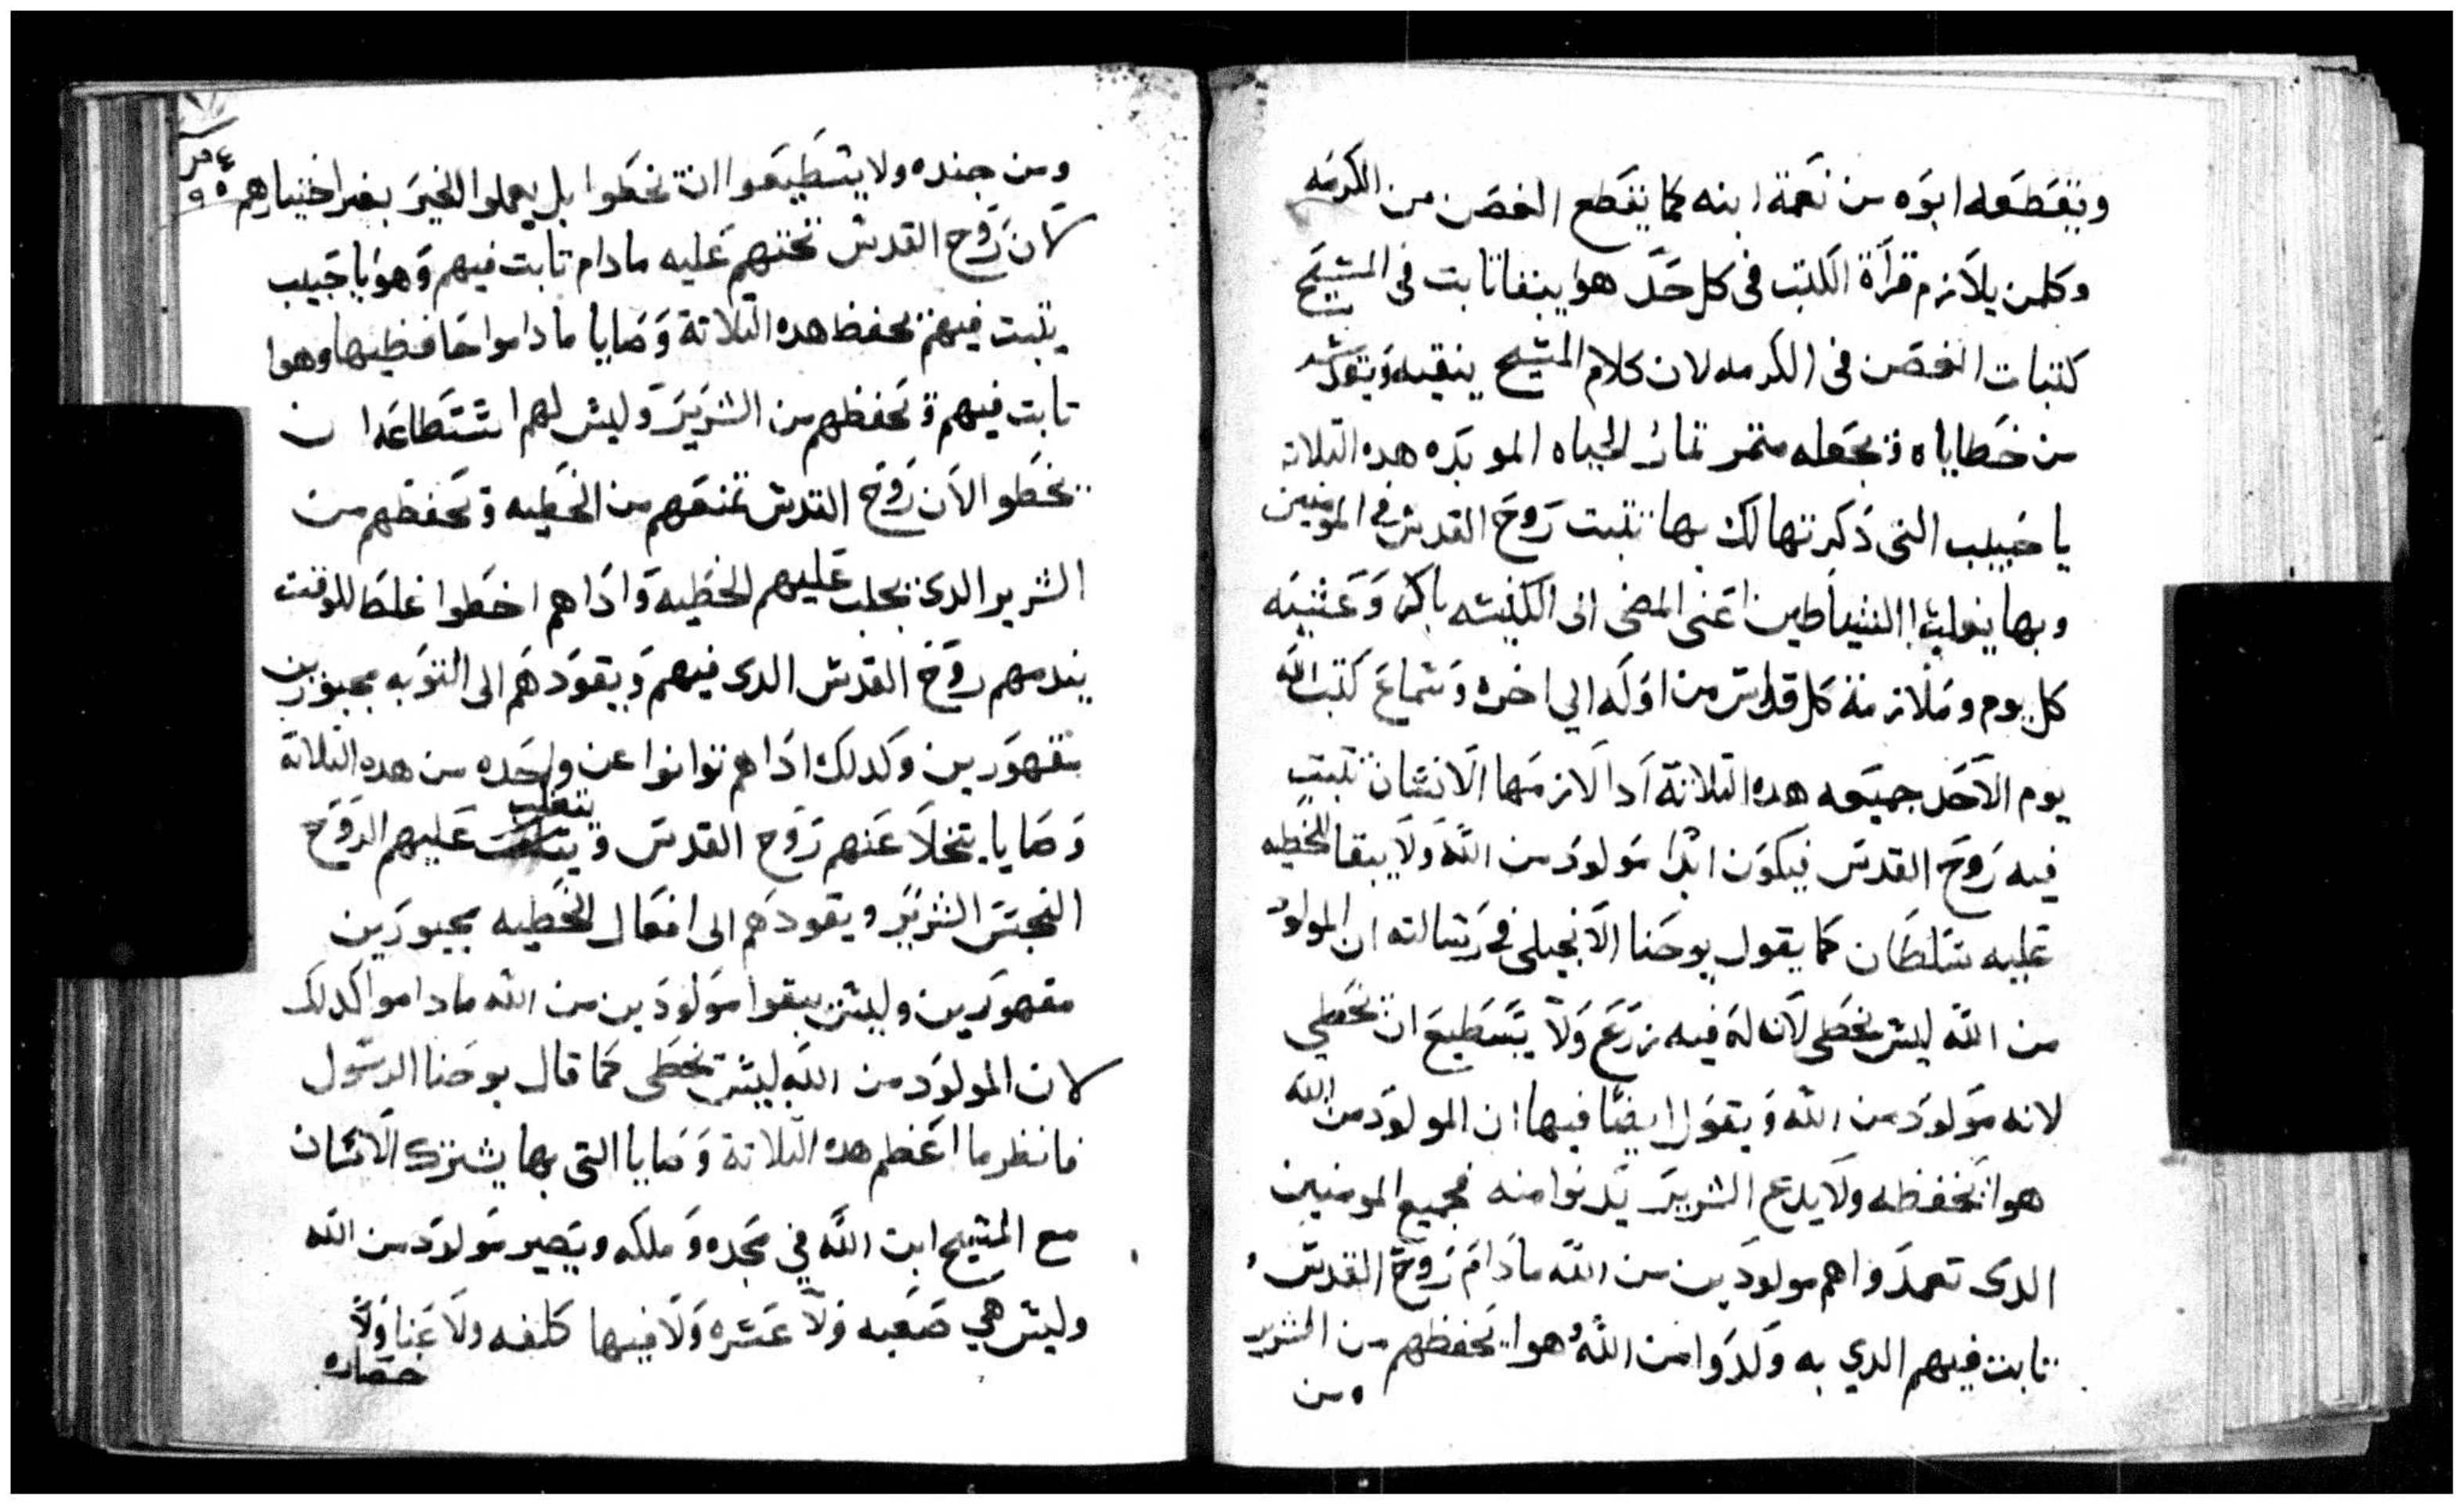 ويقطعه ابوه من نعمة ابنه كما يقطع الغصن من الكرمه
وكلمن يلازم قراة الكتب في كل حد هوا يبقا تابت في المسيح
كتبات الغصن في الكرمه لان كلام المسيح ينقيه
من خطاياه ويجعله متمر تمار الحياه الموبده هده التلاته
يا حبيب التي دكرتها لك بها تتبت روح القدس في المومنين
وبها الشياطين اعني المضي الى الكنيسه باكر وعشيه
كل يوم وملازمة كل قداس من اوله الي اخره وسماع كتب الله
يوم الاحد جميعه هده التلاتة ادا لازمها الانسان تتبت
فيه روح القدس فيكون ابدا مولود من الله ولا يبقا للخطيه
عليه سلطان كما يقول يوحنا الانجيلي في رسالته ان المولود
من الله ليس يخطي لانه له فيه زرع ولا يستطيع ان يخطي
لانه مولود من الله ويقول ايضا فيها ان المولود من الله
هوا يحفظه ولا يدع الشرير يدنوا منه فجميع المومنين
الدي تعمدوا هم مولودين من الله ما دام روح القدس
تابت فيهم الدي به ولدوا من الله وهوا يحفظهم من الشرير
ومن
ومن جنده ولا يستطيعوا ان يخطوا بل يعملوا الخير بغير اختيارهم
لان روح القدس تحتهم عليه ما دام تابت فيهم وهوا يا حبيب
يتبت فيهم بحفظ هده التلاتة وصايا ما داموا حافظيها وهوا
تابت فيهم ويحفظهم من الشرير وليس لهم استطاعه ان
يخطوا لان روح القدس تمنعهم من الخطيه وتحفظهم من
الشرير الدي يجلب عليهم الخطيه وادا هم اخطوا غلطا للوقت
يندمهم روح القدس الدي فيهم ويقودهم الى التوبه مجبورين
مقهورين وكدلك ادا هم توانوا عن واحده من هده التلاتة
وصايا يتخلا عنهم روح القدس ويتغلب عليهم الروح
النجس الشرير ويقودهم الى افعال الخطيه مجبورين
مقهورين وليس يبقوا مولودين من الله ما داموا كدلك
لان المولود من الله ليس يخطي كما قال يوحنا الرسول
فانظر ما اعظم هده التلاتة وصايا التي بها يشترك الانسان
مع المسيح ابن الله في مجده وملكه ويصير مولود من الله
وليس هي صعبه ولا عسره ولا فيها كلفه ولا عنا ولا
خساره